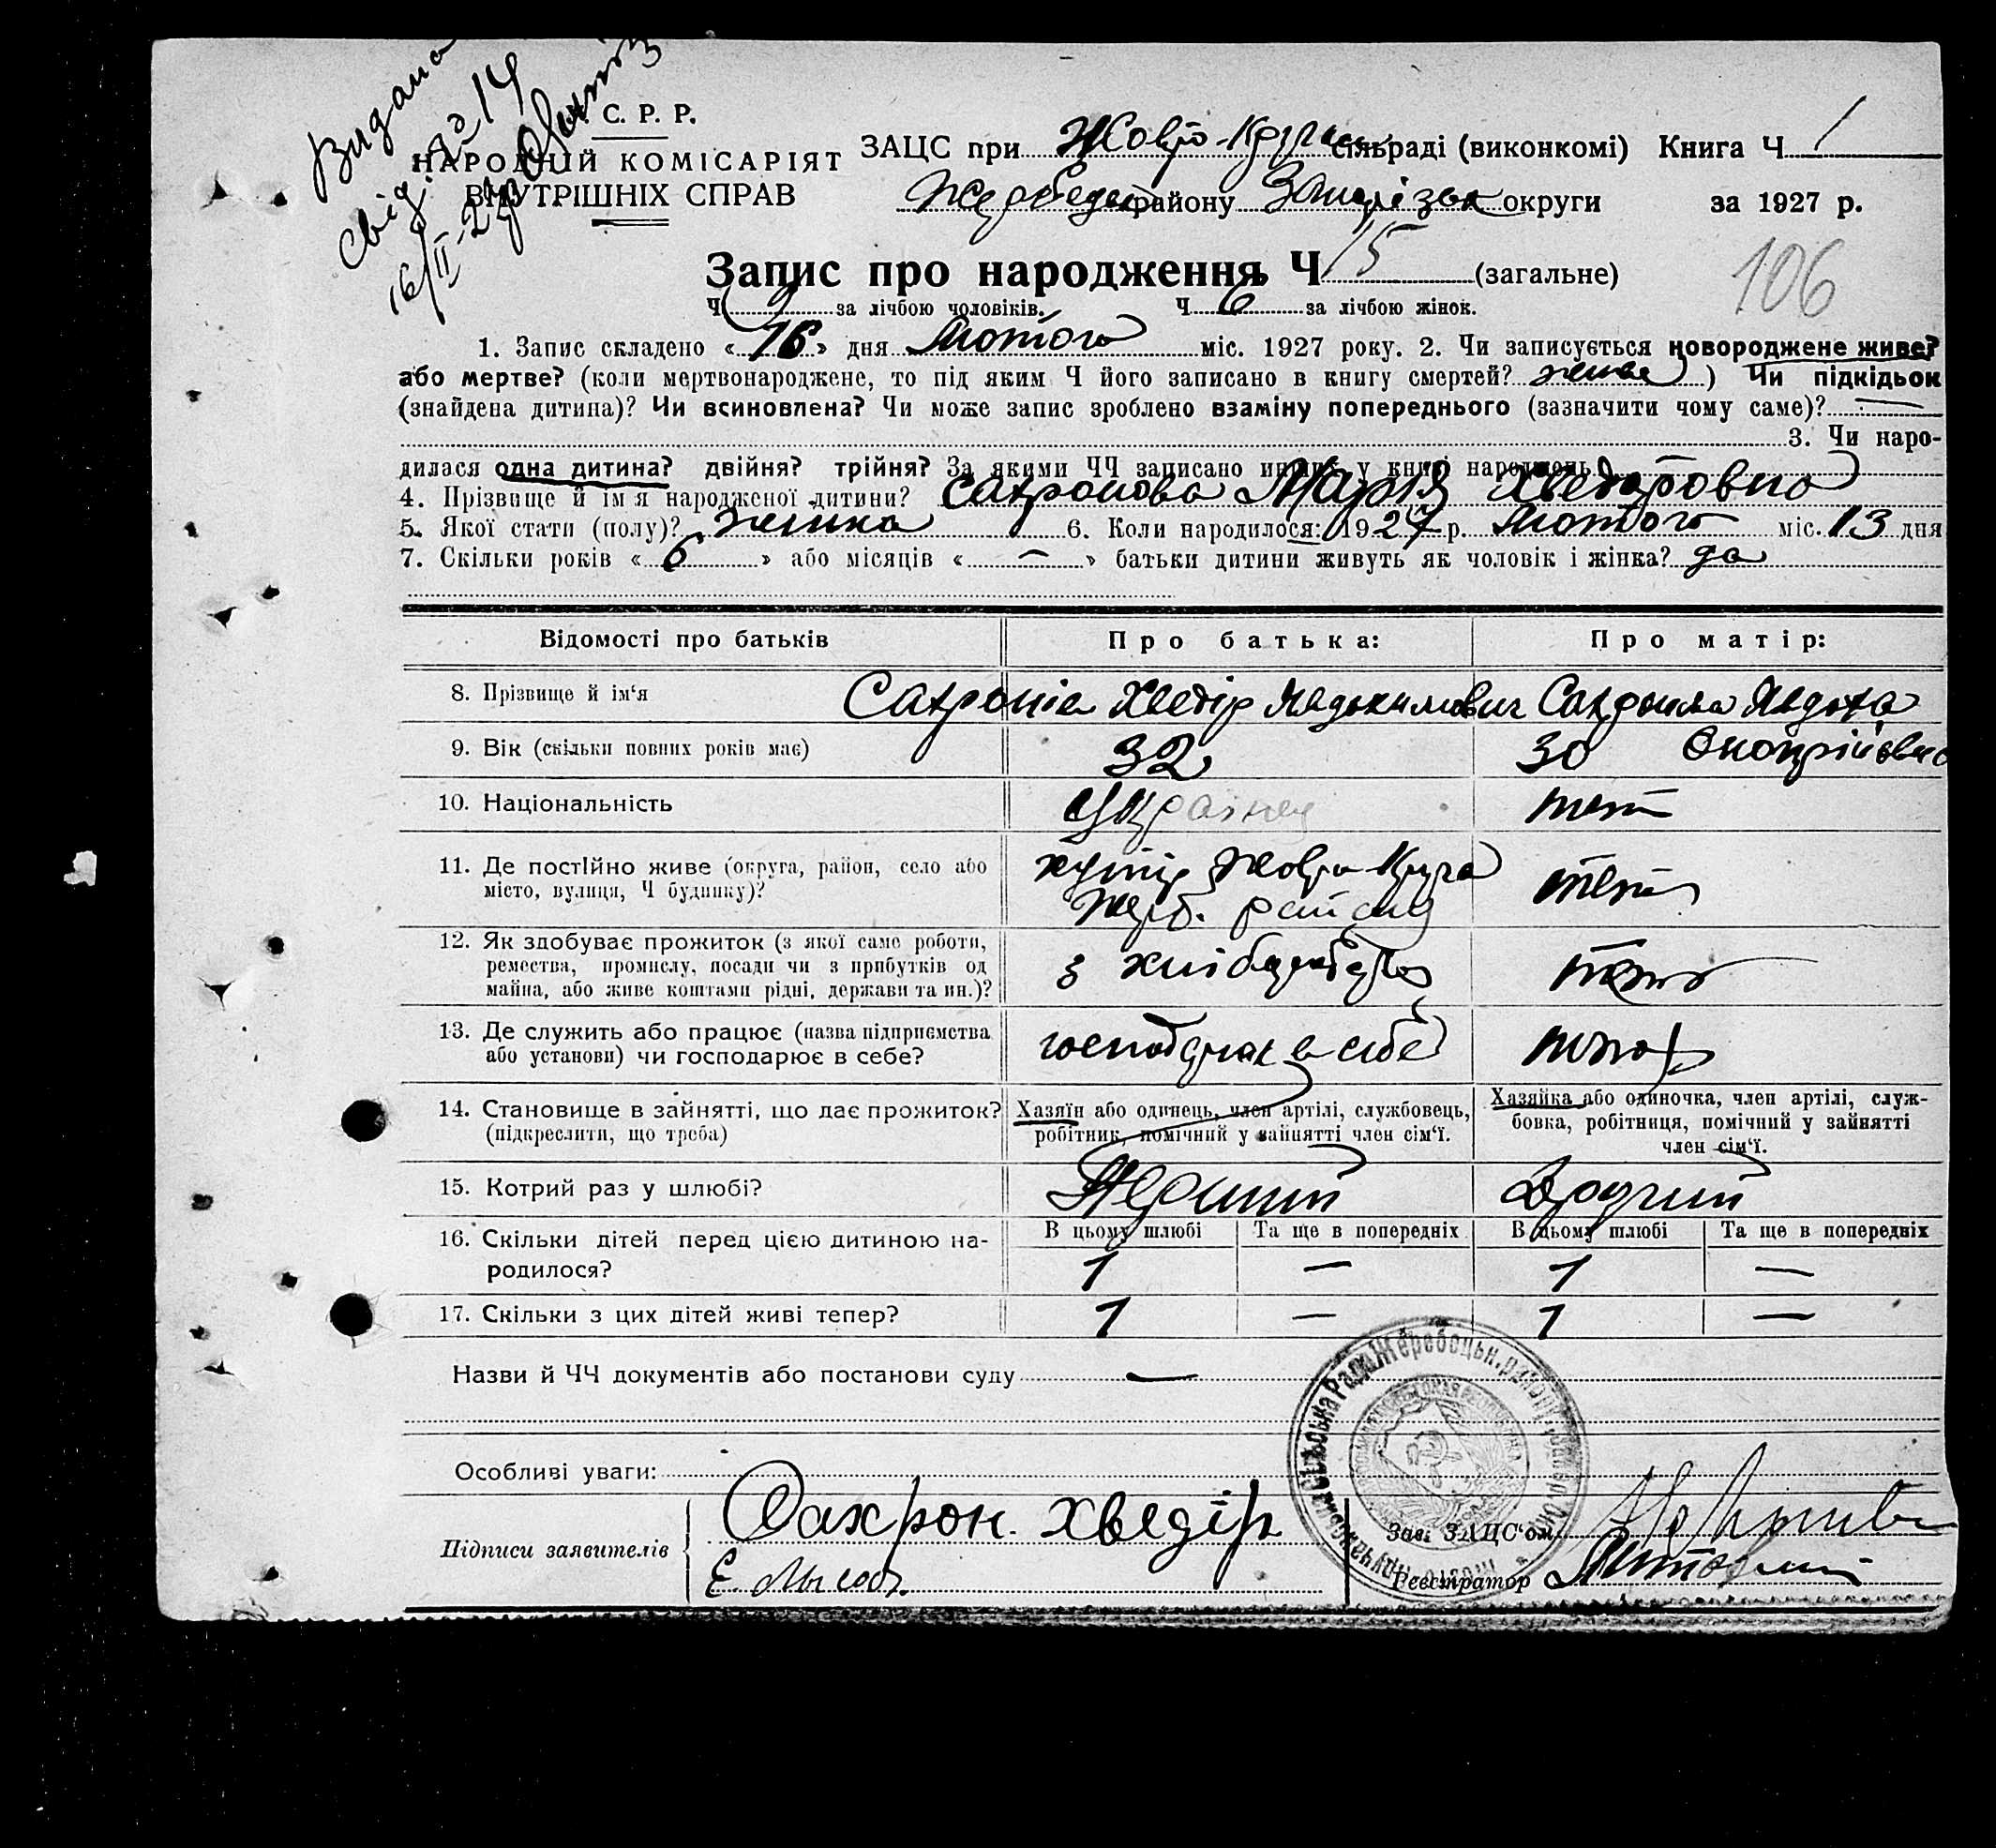 Видано
свід. № 14
16/II-27 р.
С. Р. Р.
НАРОДНІЙ КОМІСАРІЯТ
ВНУТРІШНІХ СПРАВ
ЗАЦС при Жовто-Круч сільраді (виконкомі) Книга Ч 1
Жеребец району Запорізьк округи за 1927 р.
106
Запис про народження Ч 15 (загальне)
Ч 9 за лічбою чоловіків. Ч 6 за лічбою жінок.
1. Запис складено « 16 » дня Лютого міс. 1927 року. 2. Чи записується новороджене живе?
або мертве? (коли мертвонароджене, то під яким Ч його записано в книгу смертей? живе ) Чи підкідьок
(знайдена дитина)? Чи всиновлена? Чи може запис зроблено взаміну попереднього (зазначити чому саме)? —
3. Чи наро-
дилася одна дитина? двійня? трійня? За якими ЧЧ записано инших у книзі народжень
4. Прізвище й ім'я народженої дитини? Сахронова Марія Хведоровна
5. Якої стати (полу)? жінка 6. Коли народилося: 1927 р. Лютого міс. 13 дня
7. Скільки років « 6 » або місяців « — » батьки дитини живуть як чоловік і жінка? да
Відомості про батьків Про батька: Про матір:
8. Прізвище й ім'я Сахронів Хведір Явдокимович Сахронова Явдоха
9. Вік (скільки повних років має) 32 30
10. Національність Українец теж
11. Де постійно живе (округа, район, село або
місто, вулиця, Ч будинку)? хутір Жовта Круча Жереб. району теж
12. Як здобуває прожиток (з якої саме роботи,
ремества, промислу, посади чи з прибутків од
майна, або живе коштами рідні, держави та ин.)? з хлібороб теж
13. Де служить або працює (назва підприємства
або установи) чи господарює в себе? господарює в себе теж
14. Становище в зайнятті, що дає прожиток? Хазяїн або одинець, член артілі, службовець, Хазяйка або одиночка, член артілі, служ-
(підкреслити, що треба) робітник, помічний у зайнятті член сім'ї. бовка, робітниця, помічний у зайнятті
член сім'ї.
15. Котрий раз у шлюбі? Перший Другий
16. Скільки дітей перед цією дитиною на- В цьому шлюбі Та ще в попередніх В цьому шлюбі Та ще в попередніх
родилося? 1 — 1 —
17. Скільки з цих дітей живі тепер? 1 — 1 —
Назви й ЧЧ документів або постанови суду —
Особливі уваги:
Підписи заявителів Сахрон. Хведір
Зав. ЗАЦС'ом
Реєстратор